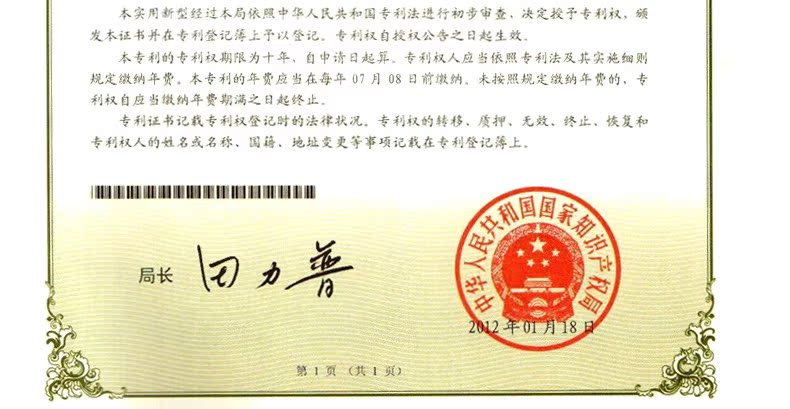 本实用新型经过本局依照中华人民共和国专利法进行初步审查、决定授予专利权，颁
发本证书并在专利登记簿上予以登记。专利权自授权公告之日起生效。
本专利的专利权期限为十年，自申请日起算。专利权人应当依照专利法及其实施细则
规定缴纳年费。本专利的年费应当在每年 07 月 08 日前缴纳。未按照规定缴纳年费的，专
利权自应当缴纳年费期满之日起终止。
专利证书记载专利权登记时的法律状况。专利权的转移、质押、无效、终止、恢复和
专利权人的姓名或名称、国籍、地址变更等事项记载在专利登记簿上。
局长
田力普
中华人民共和国国家知识产权局
2012 年 01 月 18 日
第 1 页 （共 1 页）